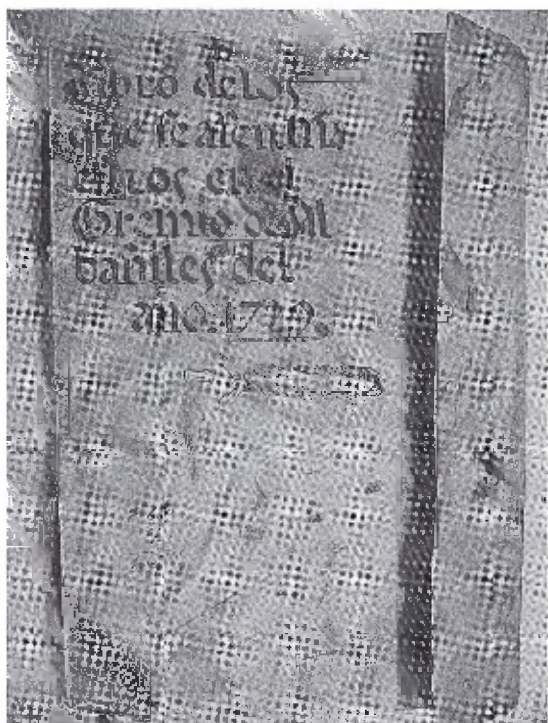 Libro delos
que se asentaís
en el
Gremio de Al
bañiles del
año. 1729.